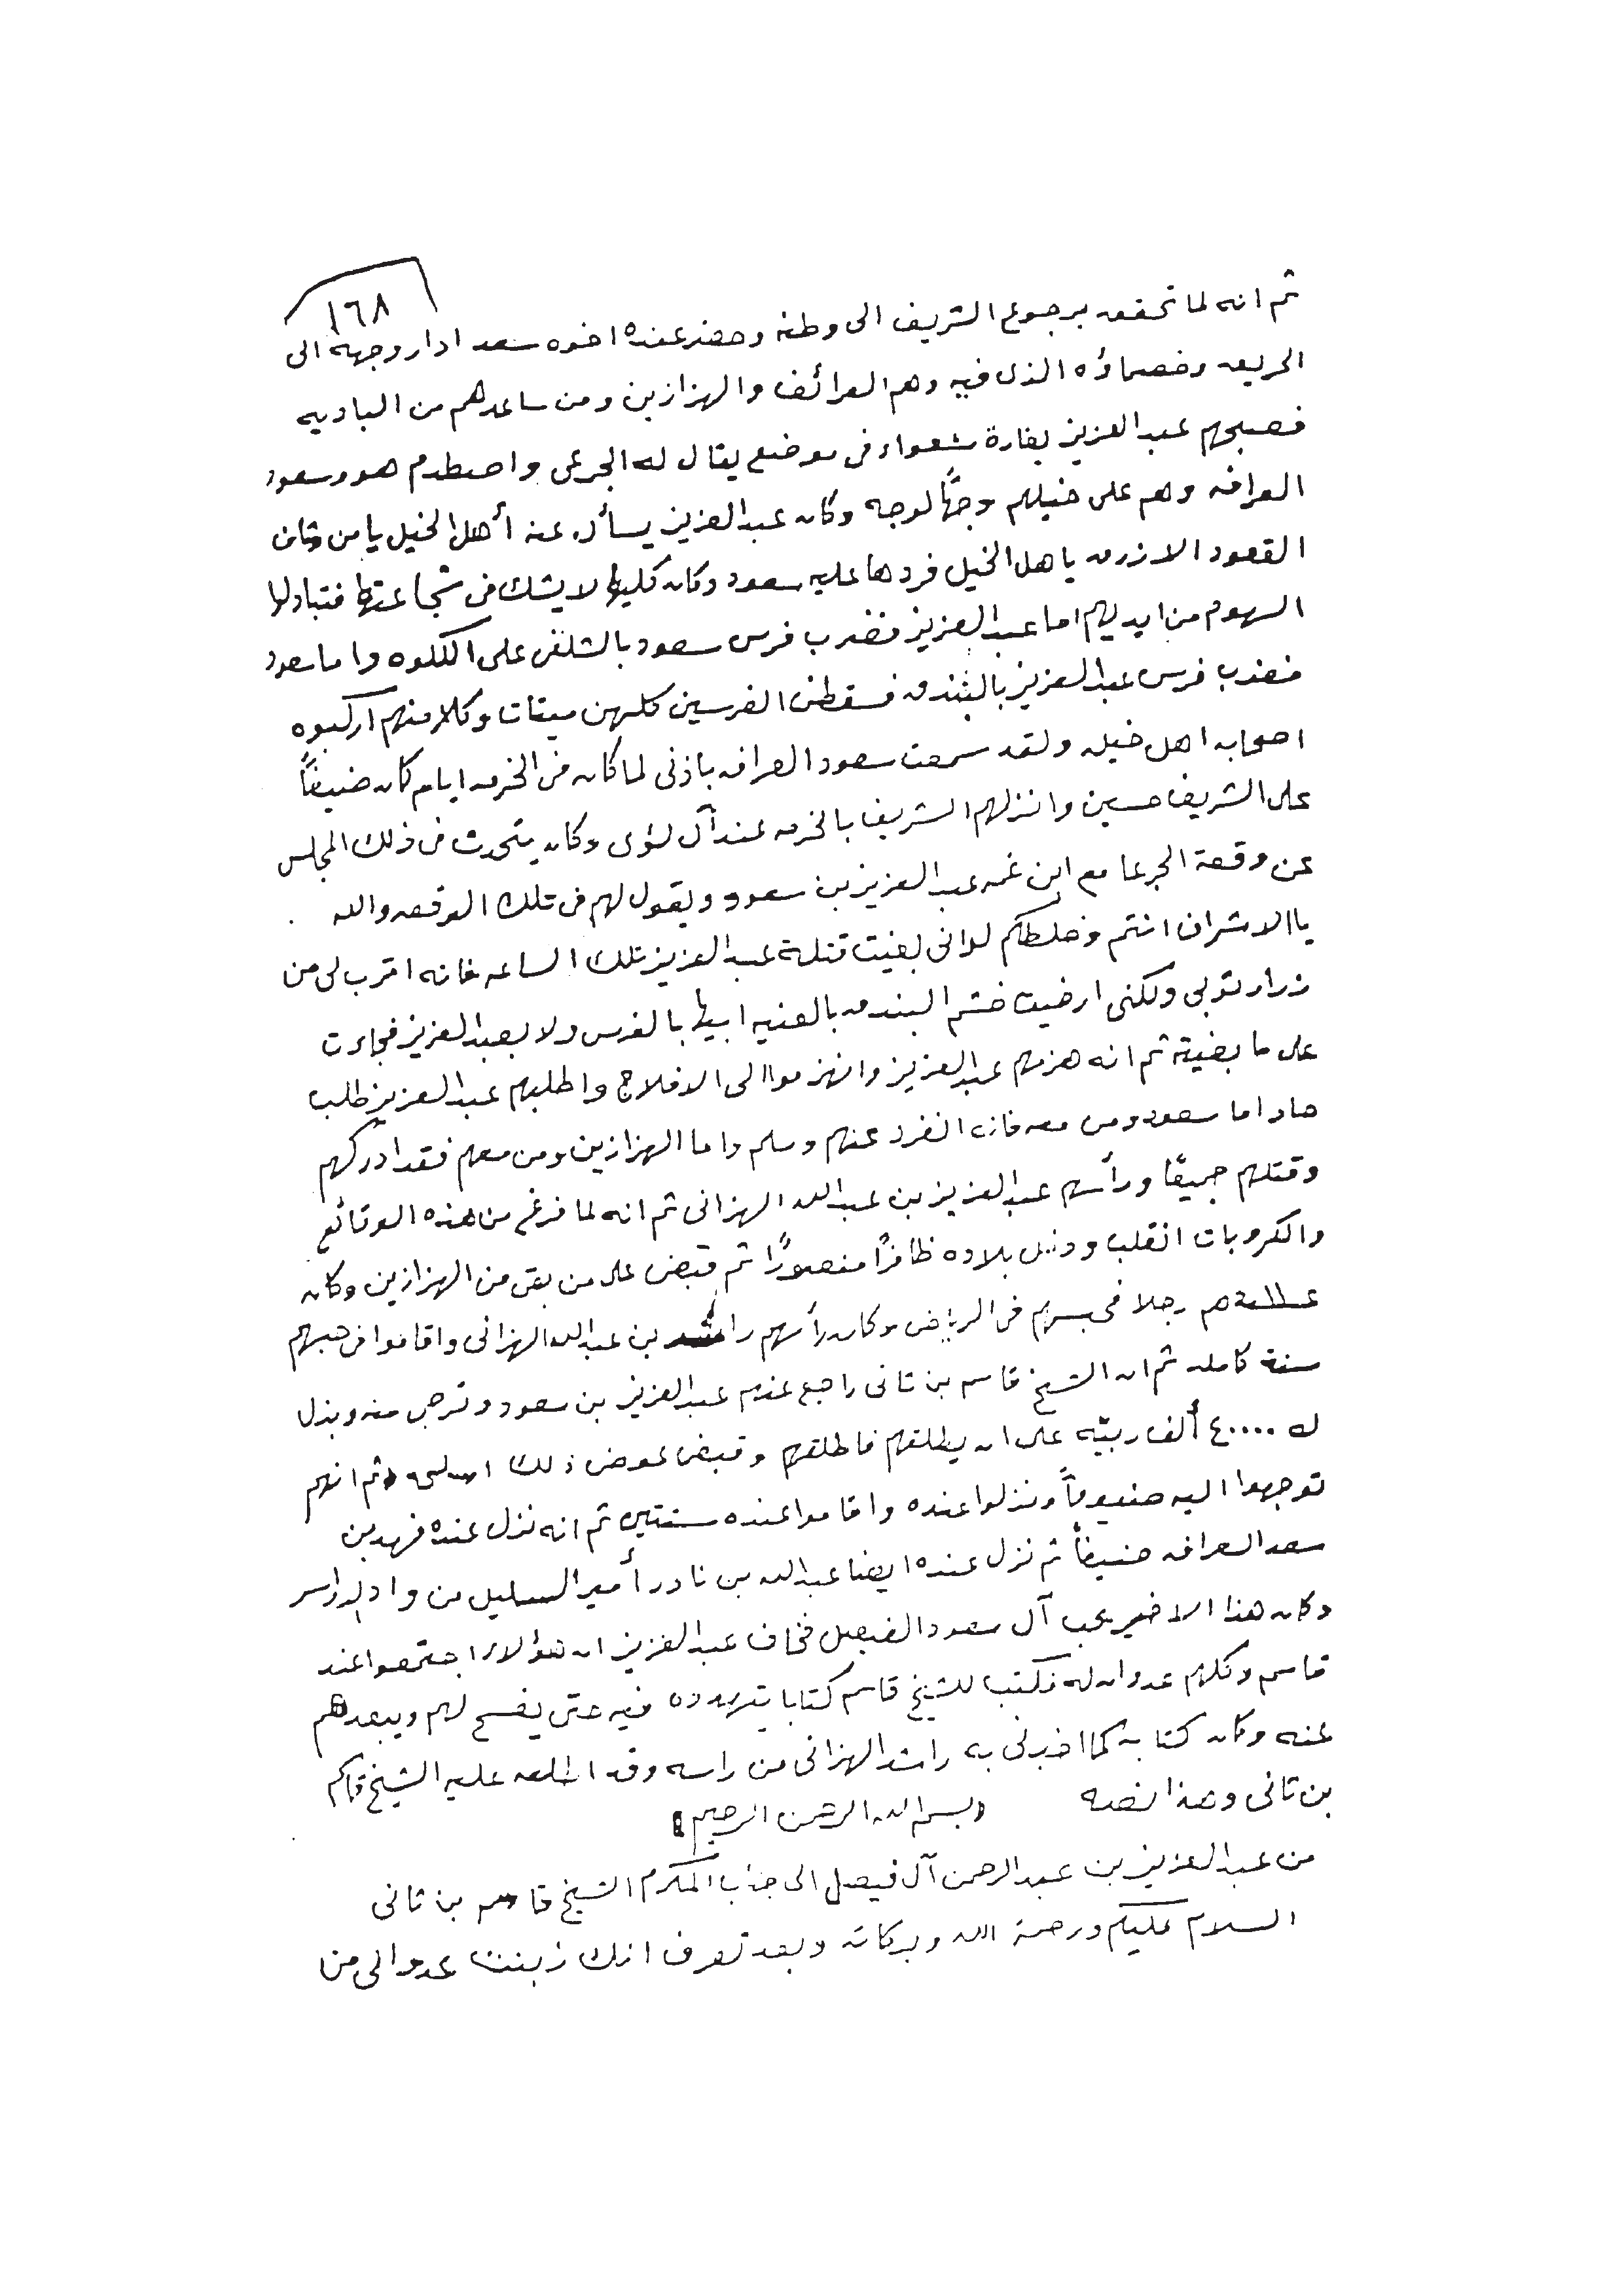 ١٦٨
ثم انه لما تحقق برجوع الشريف الى وطنه وحضر عنده اخوه سعد ادار وجهه الى
الحريق وخصماؤه الذى فيه وهم العرائف والهزازين ومن ساعدهم من الباديه
فصبحهم عبدالعزيز بغارة شعواء فى موضع يقال له الجرعى واصطدم هو وسعود
العرافه وهم على خيلهم وجهًا لوجه وكان عبدالعزيز يسأل عنه أهل الخيل يا من شاف
القعود الازرق ياهل الخيل فردها عليه سعود وكان كليهما لا يشك فى شجاعتها فتبادلها
السهوم من ايديهم اما عبدالعزيز فضرب فرس سعود بالشلفى على الكلوه واما سعود
فضرب فرس عبدالعزيز بالبندق فسقطن الفرسين كلهن ميتات وكلا منهم اركبوه
اصحابه اهل خيله ولقد سمعت سعود العرافه باذنى لما كان فى الخرمه ايام كان ضيفًا
على الشريف حسين وانزلهم الشريف بالخرمه عند آل لؤى وكان يتحدث فى ذلك المجلس
عن وقعة الجرعا مع ابن عمه عبدالعزيز بن سعود ويقول لهم فى تلك الوقعه والله
يا الاشراف انتم وخلطكم لوانى بغيت قتلة عبدالعزيز تلك الساعه فانه اقرب لى من
زرار ثوبى ولكنى ارضيت خشم البندق بالعنيه ابيها بالفرس ولا بعبدالعزيز فجاءت
على ما بغيته ثم انه هزمهم عبدالعزيز وانهزموا الى الافلاج واطلبهم عبدالعزيز طلب
حاد اما سعود ومن معه فانه انفرد عنهم وسلم واما الهزازين ومن معهم فقد ادركهم
وقتلهم جميعًا ورأسهم عبدالعزيز بن عبدالله الهزانى ثم انه لما فرغ من هذه الوقائع
والكروبات انقلب ودخل بلاده ظافرًا منصورًا ثم قبض على من بقى من الهزازين وكان
رجلا فحبسهم فى الرياض وكان رأسهم راشد بن عبدالله الهزانى واقاموا فى حبسهم
سنة كامله ثم ان الشيخ قاسم بن ثانى راجع عنهم عبدالعزيز بن سعود وترجى منه وبذل
له ٤٠٠٠٠ ألف ربيّه على ان يطلقهم فاطلقهم وقبض عوض ذلك ثم انهم
توجهوا اليه ضيوفاً ونزلوا عنده واقاموا عنده سنتين ثم انه نزل عنده فهد بن
سعد العرافه ضيفاً ثم نزل عنده ايضا عبدالله بن نادر أمير السليل من واد الدواسر
وكان هذا الاخير يحب آل سعود الفيصل فخاف عبدالعزيز ان هؤلاء اجتمعوا عند
قاسم وكلهم عدوان له فكتب للشيخ قاسم كتابا يتهدده فيه حتى يفسح لهم ويبعدهم
عنه وكان كتابه كما اخبرنى به راشد الهزانى من راسه وقد اطلعه عليه الشيخ قاسم
بن ثانى وهذا نصه (بسم الله الرحمن الرحيم)
من عبدالعزيز بن عبدالرحمن آل فيصل الى جناب المكرم الشيخ قاسم بن ثانى
السلام عليكم ورحمة الله وبركاته وبعد تعرف انك زبنت عدوا لى من